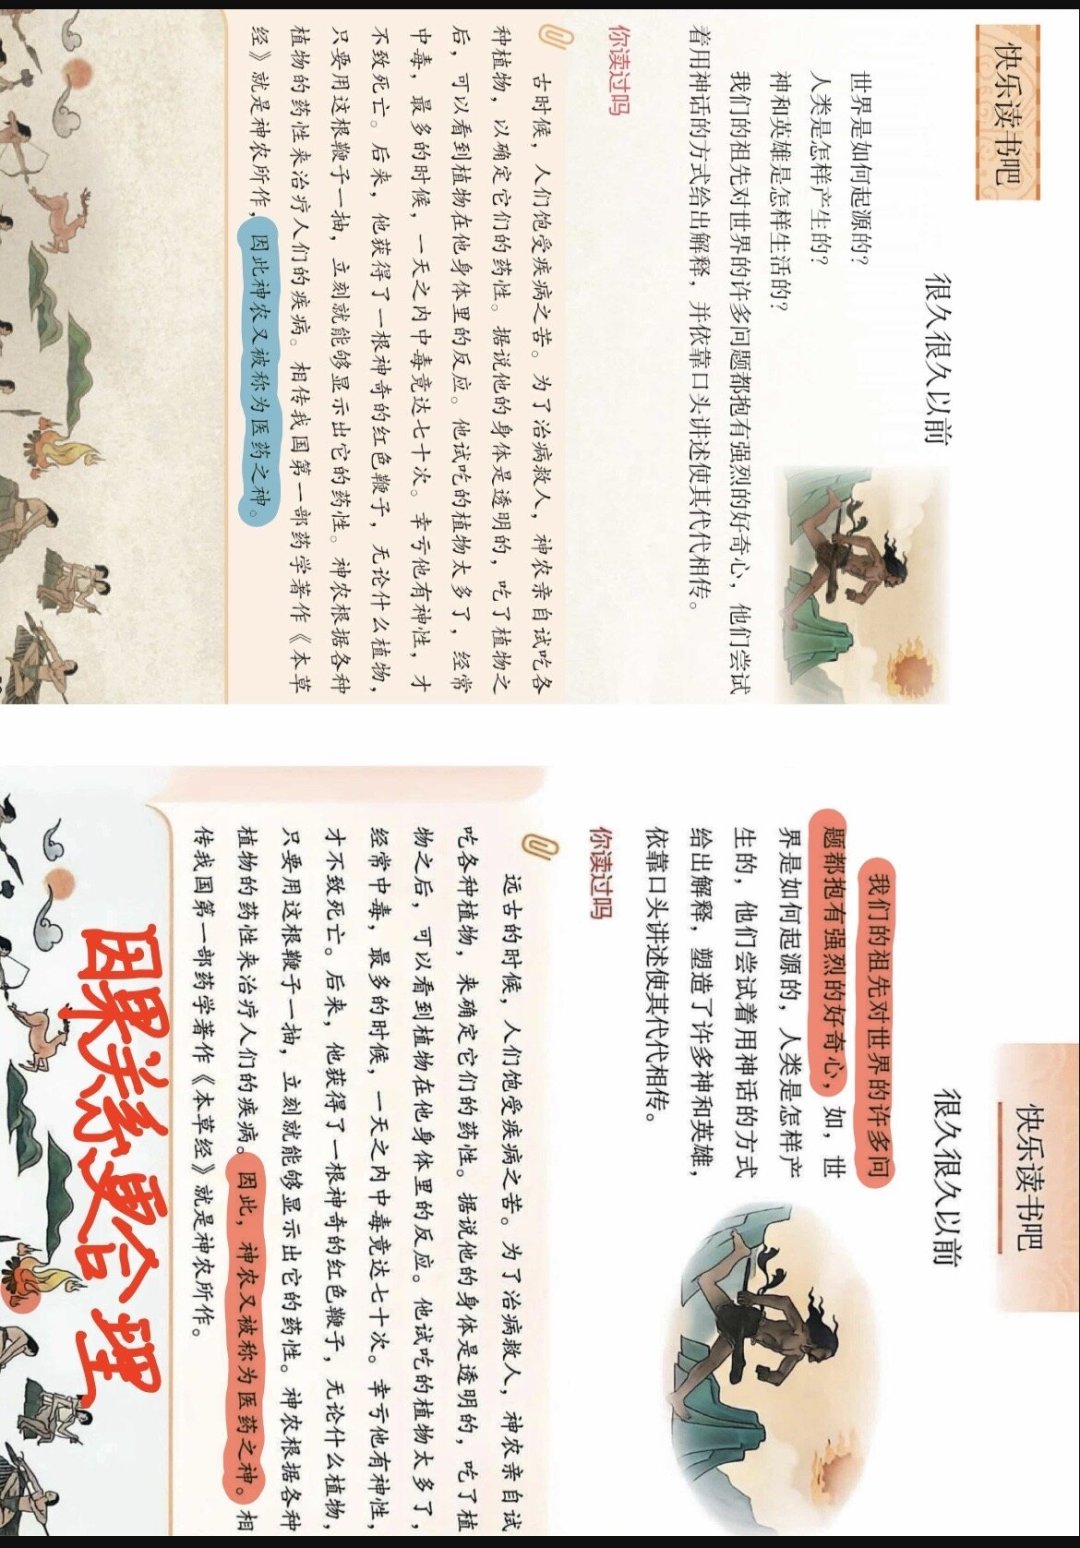 快乐读书吧
很久很久以前
世界是如何起源的?
人类是怎样产生的?
神和英雄是怎样生活的?
我们的祖先对世界的许多问题都抱有强烈的好奇心，他们尝试
着用神话的方式给出解释，并依靠口头讲述使其代代相传。
你读过吗
古时候，人们饱受疾病之苦。为了治病救人，神农亲自试吃各
种植物，以确定它们的药性。据说他的身体是透明的，吃了植物之
后，可以看到植物在他身体里的反应。他试吃的植物太多了，经常
中毒，最多的时候，一天之内中毒竟达七十次。幸亏他有神性，才
不致死亡。后来，他获得了一根神奇的红色鞭子，无论什么植物，
只要用这根鞭子一抽，立刻就能够显示出它的药性。神农根据各种
植物的药性来治疗人们的疾病。相传我国第一部药学著作《本草
经》就是神农所作，因此神农又被称为医药之神。
快乐读书吧
很久很久以前
我们的祖先对世界的许多问
题都抱有强烈的好奇心，如，世
界是如何起源的，人类是怎样产
生的，他们尝试着用神话的方式
给出解释，塑造了许多神和英雄，
依靠口头讲述使其代代相传。
你读过吗
远古的时候，人们饱受疾病之苦。为了治病救人，神农亲自试
吃各种植物，来确定它们的药性。据说他的身体是透明的，吃了植
物之后，可以看到植物在他身体里的反应。他试吃的植物太多了，
经常中毒，最多的时候，一天之内中毒竟达七十次。幸亏他有神性，
才不致死亡。后来，他获得了一根神奇的红色鞭子，无论什么植物，
只要用这根鞭子一抽，立刻就能够显示出它的药性。神农根据各种
植物的药性来治疗人们的疾病。因此，神农又被称为医药之神。相
传我国第一部药学著作《本草经》就是神农所作。
因果关系更合理